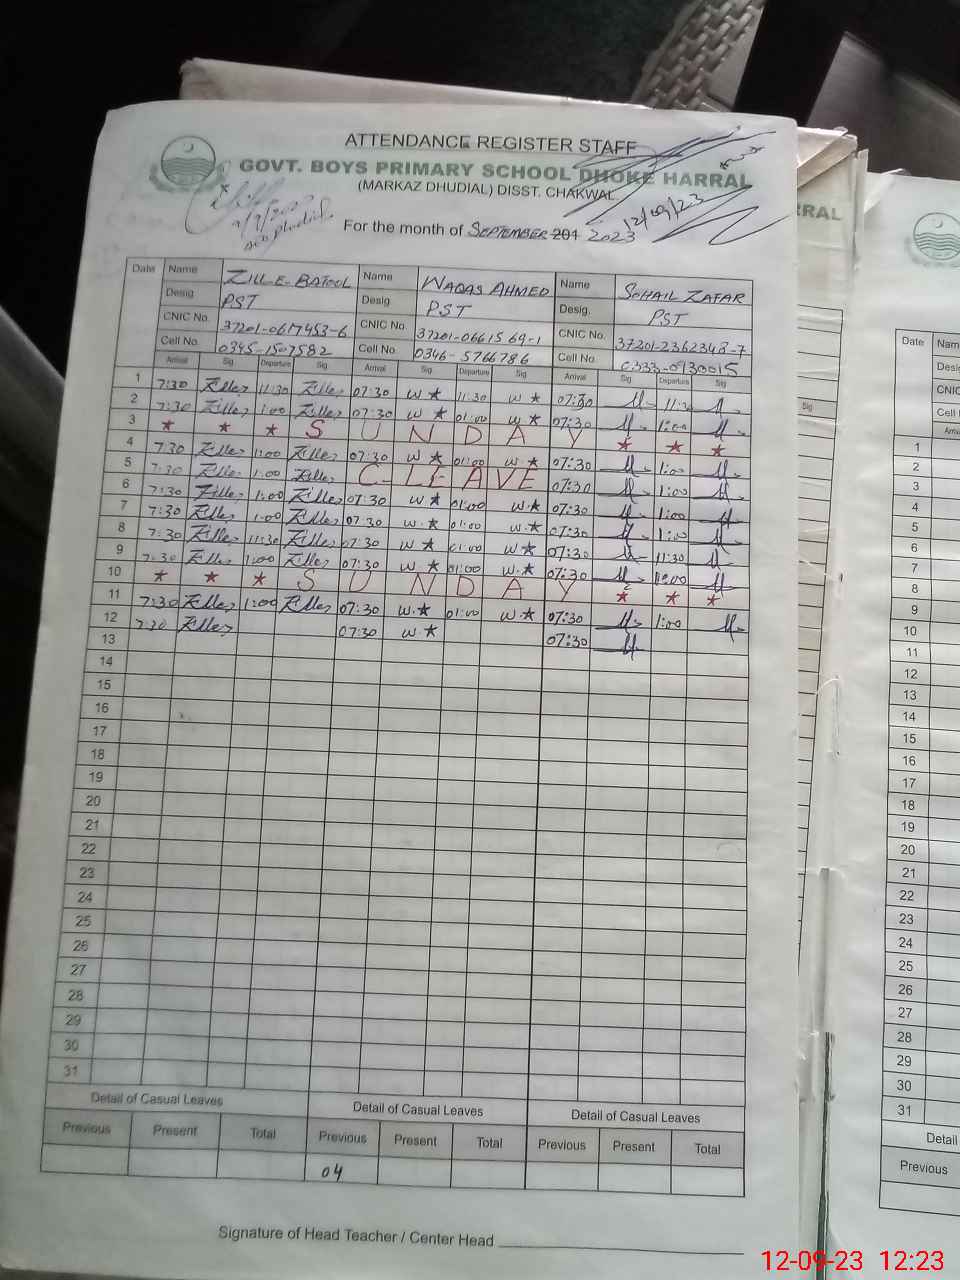 ATTENDANCE REGISTER STAFF
GOVT. BOYS PRIMARY SCHOOL DHOKE HARRAL
(MARKAZ DHUDIAL) DISST. CHAKWAL
12/09/23
For the month of SEPTEMBER 201 2023
Date Name ZILL-E-BATOOL Name WAQAS AHMED Name SOHAIL ZAFAR
Desig. PST Desig. PST Desig. PST
CNIC No. 37201-0617453-6 CNIC No. 37201-0661569-1 CNIC No. 37201-2362348-7
Cell No. 0345-1507582 Cell No. 0346-5766786 Cell No. 0333-0130015
Arrival Sig. Departure Sig. Arrival Sig. Departure Sig. Arrival Sig. Departure Sig.
1 7:30 11:30 07:30 W★ 11:30 W★ 07:30
2 7:30 1:00 07:30 W★ 01:00 W★ 07:30 1:00
3 ★ ★ ★ S U N D A Y ★ ★ ★
4 7:30 1:00 07:30 W★ 01:00 W★ 07:30 1:00
5 7:30 1:00 C-LEAVE 07:30 1:00
6 7:30 1:00 07:30 W★ 01:00 W★ 07:30 1:00
7 7:30 1:00 07:30 W★ 01:00 W★ 07:30 1:00
8 7:30 11:30 07:30 W★ 01:00 W★ 07:30 11:30
9 7:30 1:00 07:30 W★ 01:00 W★ 07:30
10 ★ ★ ★ S U N D A Y ★ ★ ★
11 7:30 1:00 07:30 W★ 01:00 W★ 07:30 1:00
12 7:30 07:30 W★ 07:30
13
14
15
16
17
18
19
20
21
22
23
24
25
26
27
28
29
30
31
Detail of Casual Leaves Detail of Casual Leaves Detail of Casual Leaves
Previous Present Total Previous Present Total Previous Present Total
04
Signature of Head Teacher / Center Head
RRAL
Sig
Date Nam
Desig
CNIC
Cell
1
2
3
4
5
6
7
8
9
10
11
12
13
14
15
16
17
18
19
20
21
22
23
24
25
26
27
28
29
30
31
Detail
Previous
12-09-23 12:23